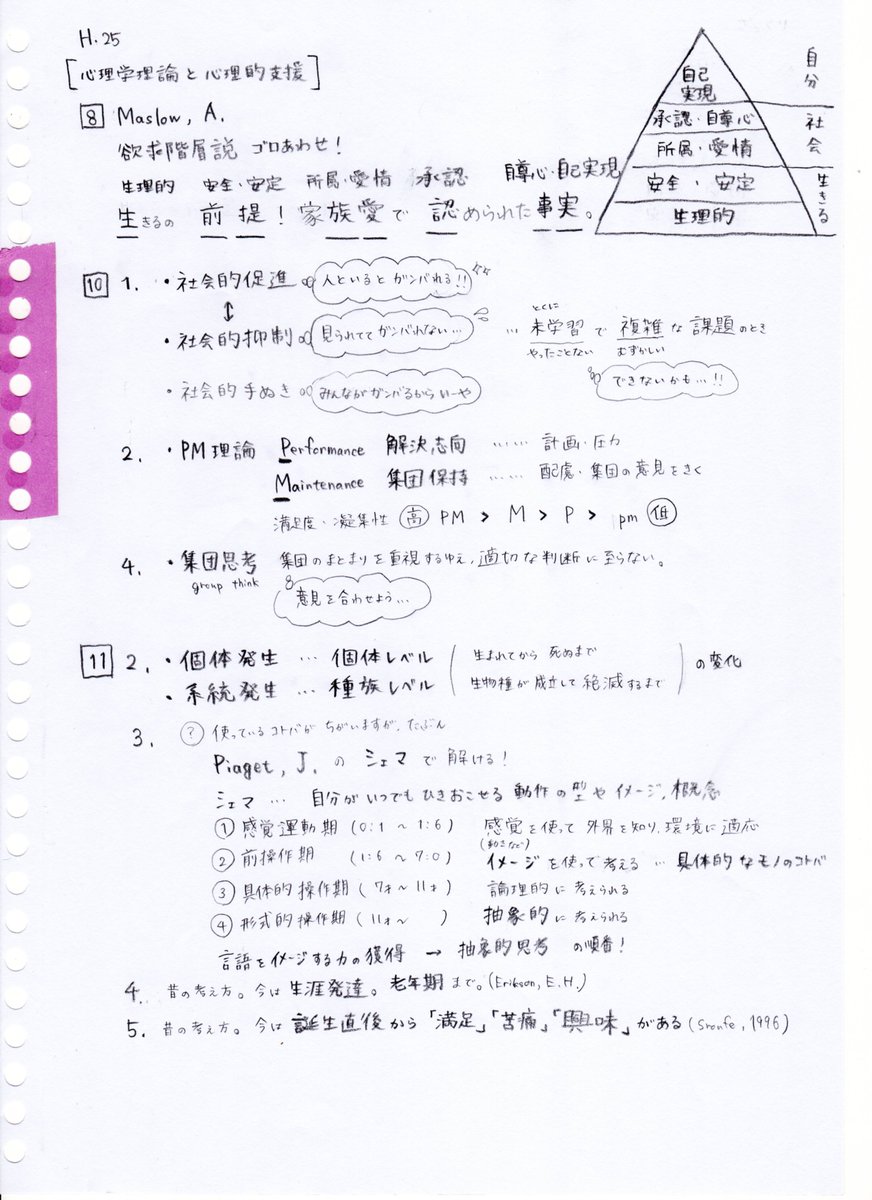 H.25
[心理学理論と心理的支援]
8 Maslow, A.
欲求階層説 ゴロあわせ!
生理的 安全・安定 所属・愛情 承認 自尊心・自己実現
生きるの 前提! 家族愛で 認められた事実。
自己
実現
承認・自尊心
所属・愛情
安全・安定
生理的
自分
社会
生きる
10 1. ・社会的促進 人といるとガンバれる!!
↕
・社会的抑制 見られててガンバれない… … とくに 未学習で 複雑な課題のとき
やったことない むずかしい
・社会的手ぬき みんながガンバるからいーや
できないかも…!!
2. ・PM理論 Performance 解決志向 …… 計画・圧力
Maintenance 集団保持 …… 配慮・集団の意見をきく
満足度・凝集性 高 PM > M > P > pm 低
4. ・集団思考 集団のまとまりを重視するゆえ、適切な判断に至らない。
group think
意見を合わせよう…
11 2. ・個体発生 … 個体レベル (生まれてから 死ぬまで
・系統発生 … 種族レベル 生物種が成立して絶滅するまで) の変化
3. ? 使っているコトバが ちがいますが、たぶん
Piaget, J. の シェマ で 解ける!
シェマ … 自分がいつでもひきおこせる 動作の型や イメージ, 概念
① 感覚運動期 (0:1 ~ 1:6) 感覚を使って 外界を知り, 環境に適応
(動きなど)
② 前操作期 (1:6 ~ 7:0) イメージを使って考える … 具体的なモノのコトバ
③ 具体的操作期 (7才~11才) 論理的に 考えられる
④ 形式的操作期 (11才~ ) 抽象的に 考えられる
言語をイメージする力の獲得 → 抽象的思考 の順番!
4. 昔の考え方。今は 生涯発達。老年期まで。(Erikson, E.H.)
5. 昔の考え方。今は 誕生直後から「満足」「苦痛」「興味」がある (Sroufe, 1996)